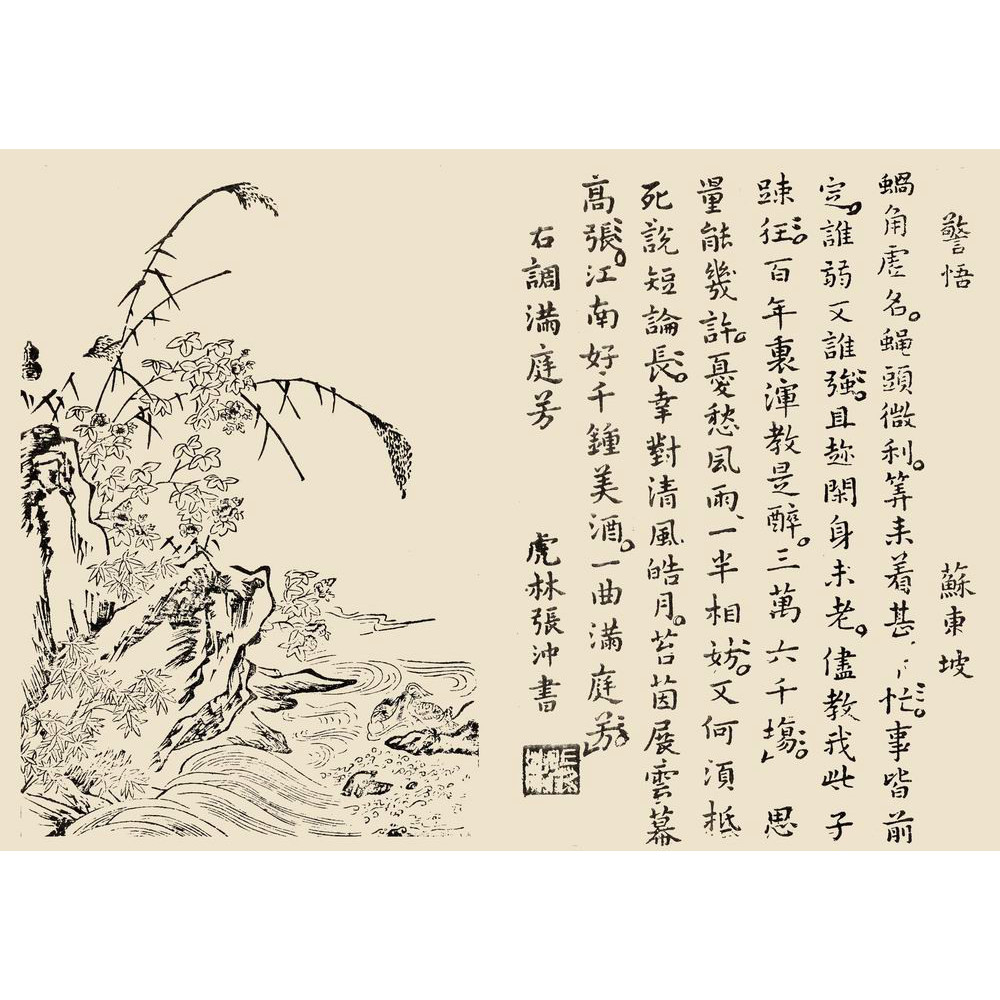 警悟 蘇東坡
蝸角虛名。蠅頭微利。筭来着甚忙。事皆前
定。誰弱又誰強。且趂閑身未老。儘教我些子
踈狂。百年裏渾教是醉。三萬六千塲。 思
量能幾許。憂愁風雨、一半相妨。又何須抵
死說短論長。幸對清風皓月。苔茵展雲幕
高張。江南好千鍾美酒。一曲滿庭芳。
右調滿庭芳 虎林張沖書